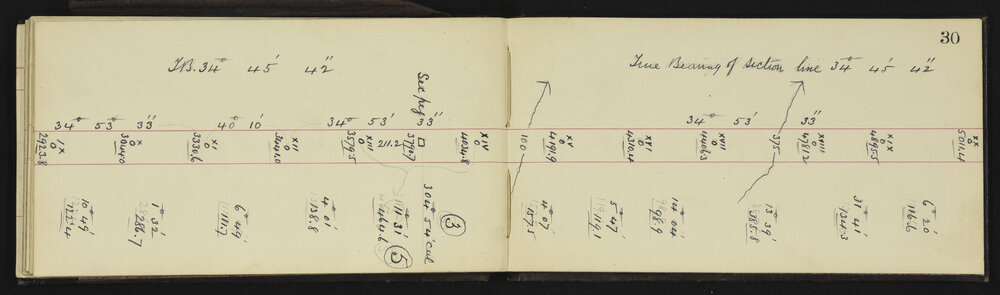 30
T.B. 34° 45' 42"
True Bearing of Section line 34° 45' 42"
Sec peg
34° 53' 33"
40° 10'
34° 53' 33"
34° 53' 33"
IX
2923.8
X
3044.0
XI
3330.6
XII
3440.0
XIII
3579.5
211.2
3790.7
XIV
4034.8
100
XV
4191.9
XVI
4310.4
XVII
4406.3
375
XVIII
4781.2
XIX
4895.5
XX
5011.4
10° 49'
1° 32'
286.7
6° 49'
111.7
4° 01'
138.8
11° 31'
464.6
304° 54' cal
3
5
4° 07'
157.5
5° 47'
119.1
14° 04'
98.9
13° 39'
385.8
31° 41'
134.3
6° 20'
116.6